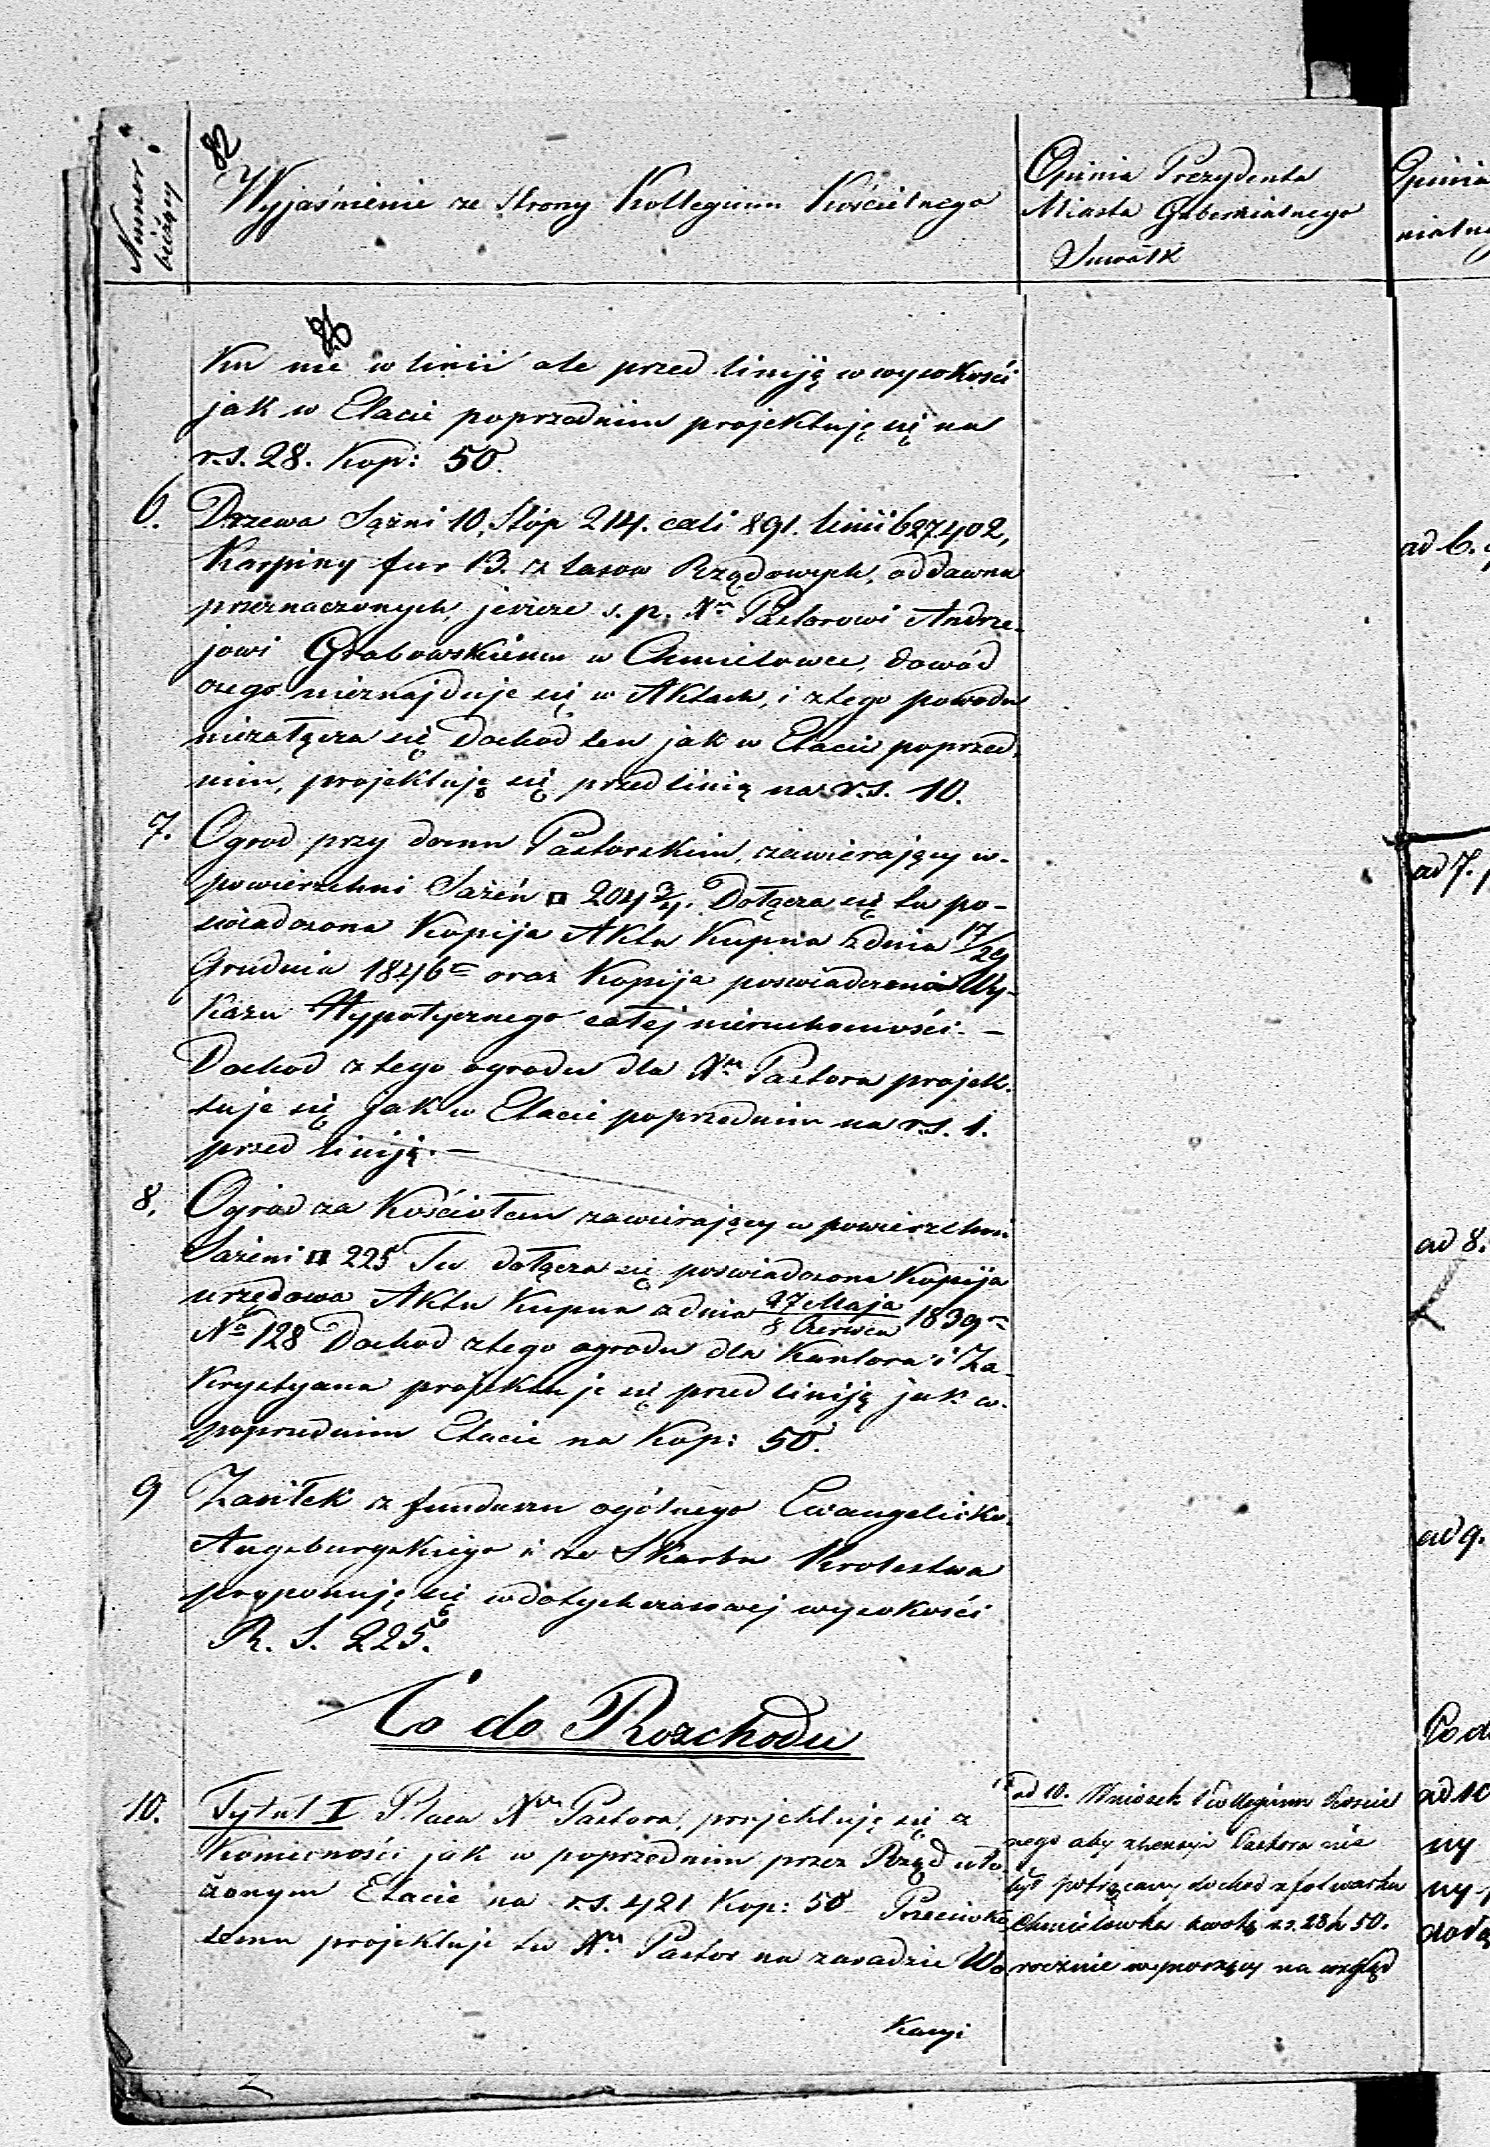 82
Numer bieżący
Wyjaśnienie ze strony Kollegium Kościelnego
Opinia Prezydenta
Miasta Gubernialnego
Suwałk
Opinia
nialne
26
Ku nie w linii ale przed liniję w wysokości
jak w Etacie poprzednim projektuję się na
r.s. 28. Kop: 50.
6. Drzewa Sążni 10, Stóp 214. cali 891. linii 627402,
Karpiny fur 13. z lasow Rządowych, oddawna
przeznaczonych, jeszcze s. p. Xu Pastorowi Andrze-
jowi Grabowskiemu w Chmielowce, dowód
czego nieznajduje się w Aktach, i ztego powodu
niezałącza się Dochód ten jak w Etacie poprzed-
nim, projektuję się przed linią na r.s. 10.
7. Ogrod przy domu Pastorskim, zawierający w-
powierzchni Sażeń □ 204 3/4. Dołącza się tu po-
swiadczona Kopija Aktu Kupna zdnia 17/29
Grudnia 1846 r oraz Kopija poswiadczona Wy-
kazu Hypotycznego całej nieruchomości. —
Dochod z tego ogrodu dla Xa Pastora projek-
tuje się jak w Etacie poprzednim na r.s. 1.
przed liniję. —
8. Ogród za Kościołem zawierający w powierzchni
Sażeni □ 225 Tu dołącza się poswiadczona Kopija
urzędowa Aktu Kupna z dnia 27 Maja / 8 Czerwca 1839 r
No 128 Dochod ztego ogrodu dla Kantora i Za-
krystyana projektuje się przed liniję jak w-
poprzednim Etacie na Kop: 50.
9 Zasiłek z funduszu ogólnego Ewangelicko-
Augsburgskiego i ze Skarbu Krolestwa
proponuję się w dotychczasowej wysokości
R. S. 225.
Co do Rozchodu
10. Tytuł I Płaca Xa Pastora, projektuję się z
Konieczności jak w poprzednim przez Rząd uło-
żonym Etacie na r.s. 421 Kop: 50 Przeciwko
temu projektuje tu X Pastor na zasadzie Wo
kacyi
ad 10. Wniosek Kollegium Kościel
nego aby z pensyi Pastora nie
był potrącany dochod z folwarku
Chmielówka kwotą r.s. 28 k 50.
rocznie wynoszący na wzgląd
ad 6.
ad 7.
ad 8.
ad 9.
Co d
ad 10
ny
ny
dołą